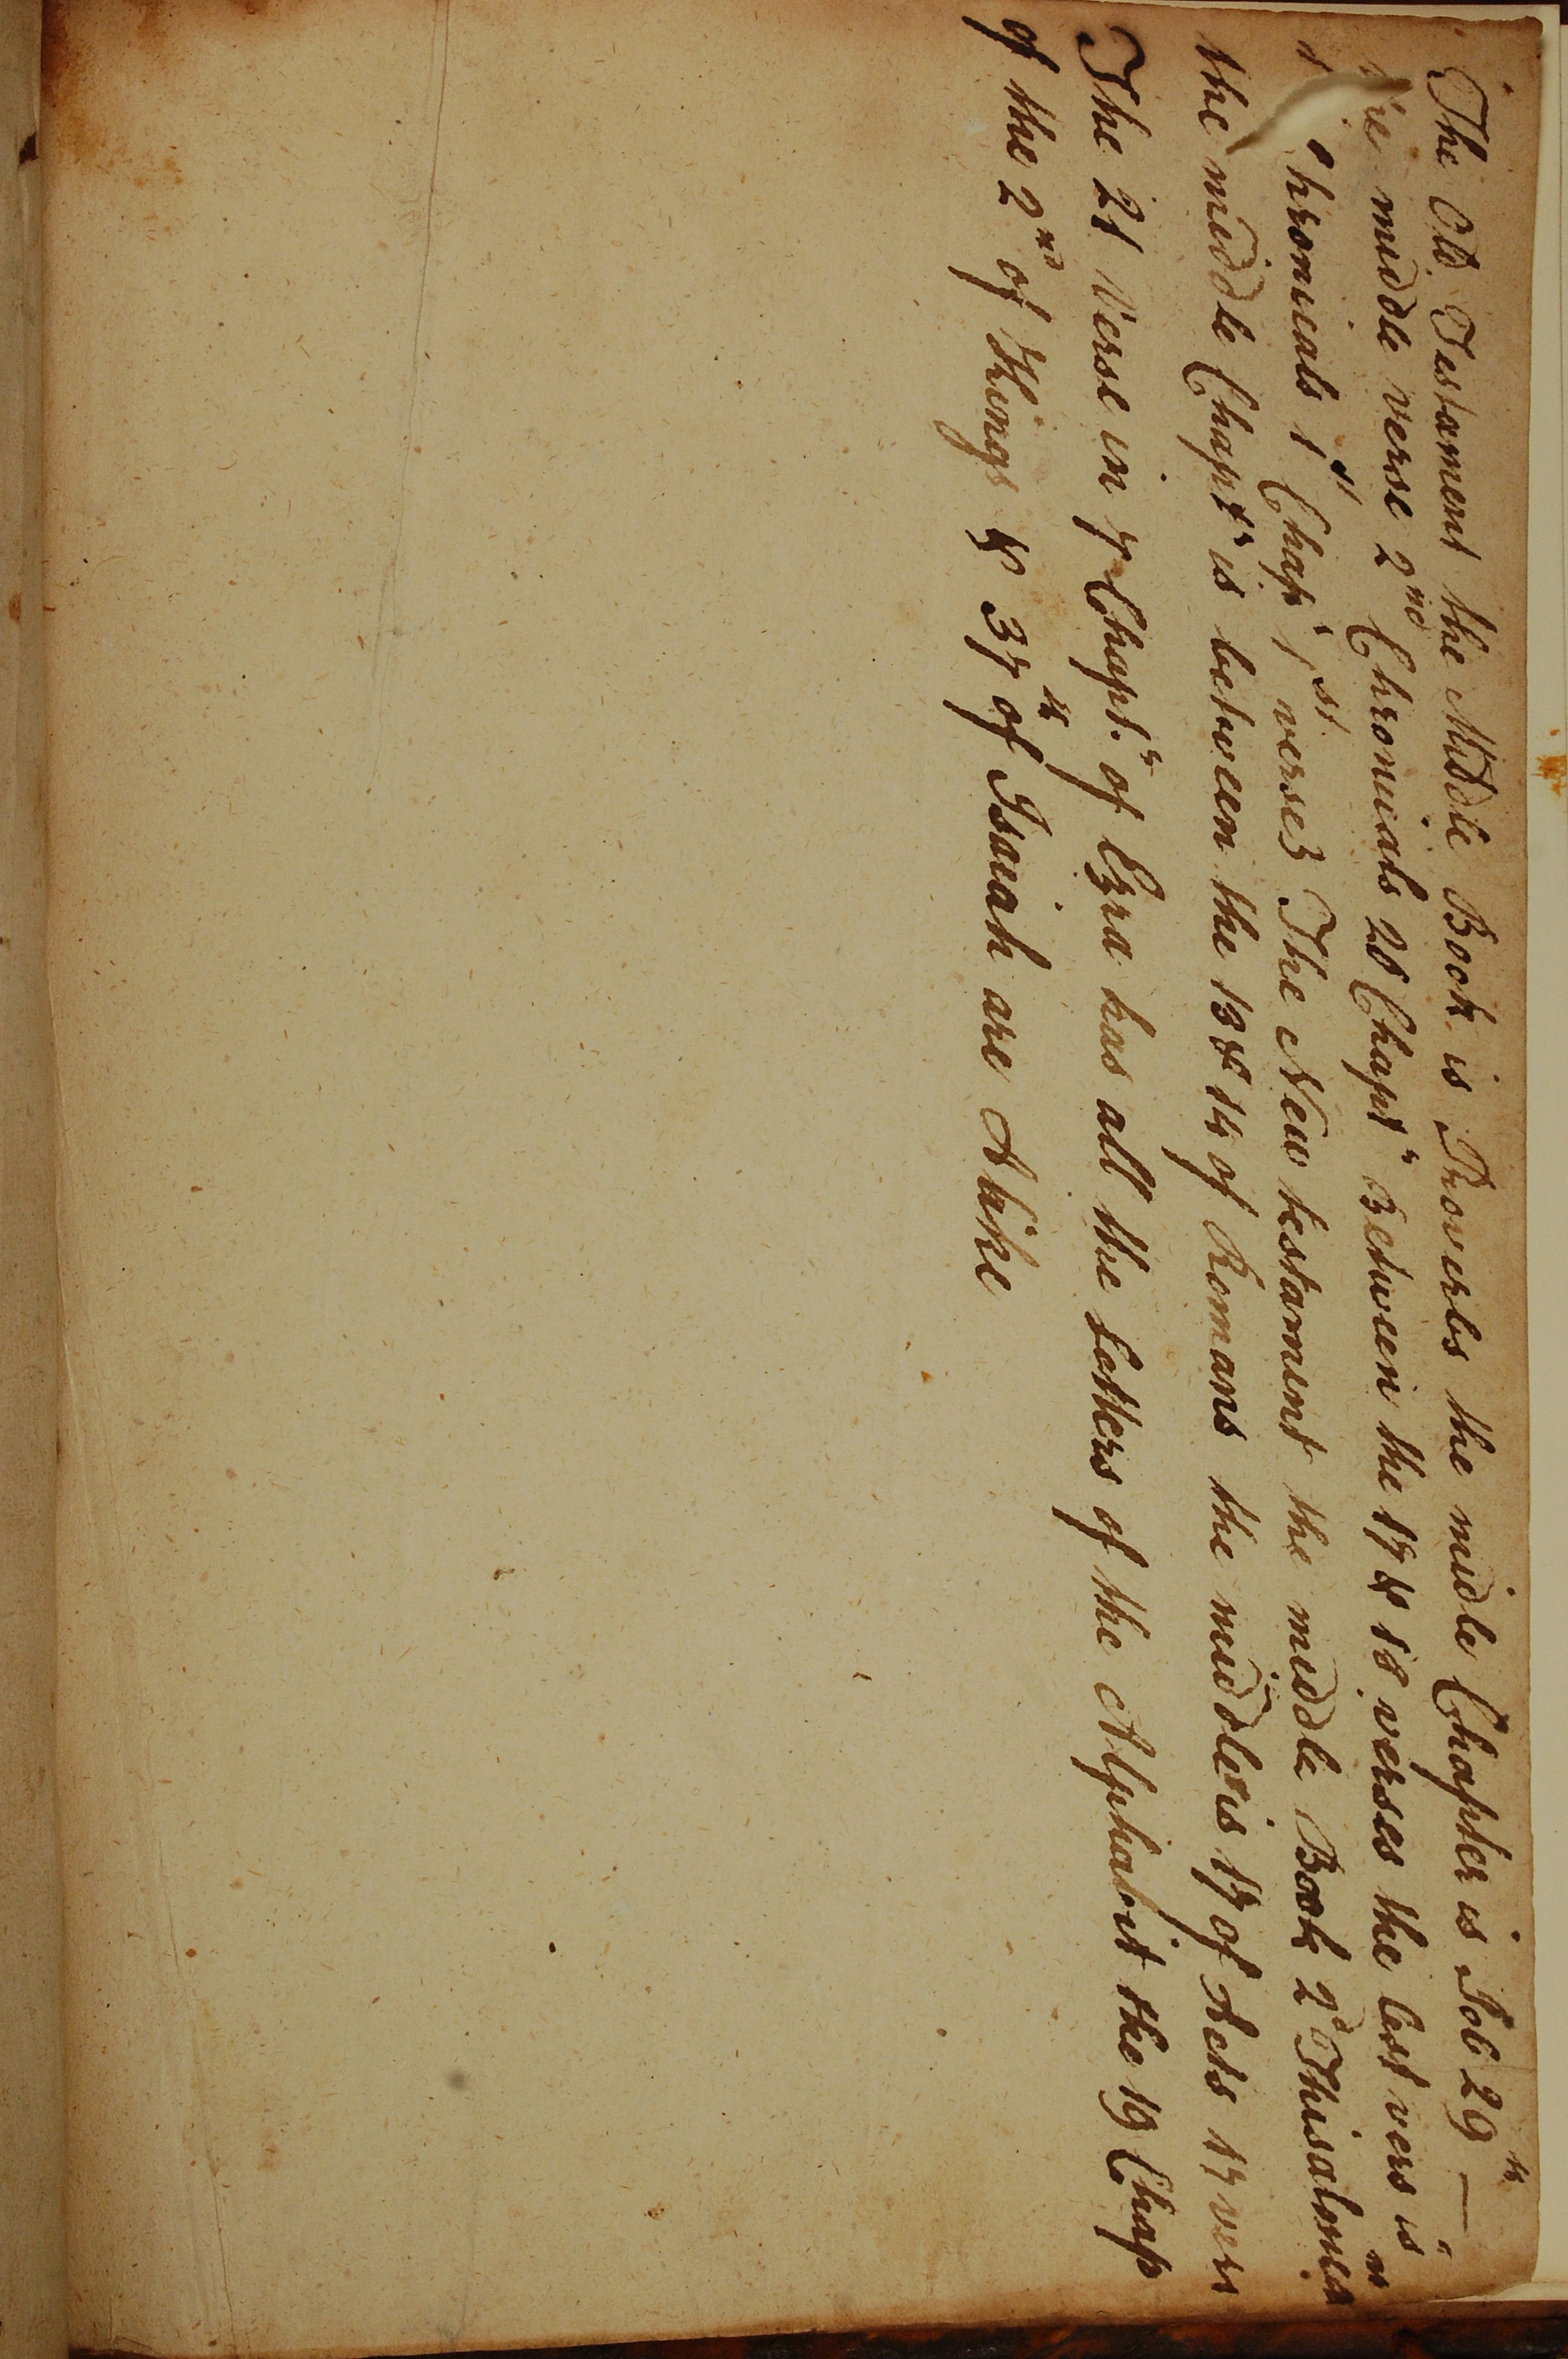 The Old Testament the Middle Book is Proverbs the midle Chapter is Job 29th —
the middle verse 2nd Chronicals 20 Chapr Between the 17 & 18 verses the last vers is
1st Chronicals 1st Chapr 1st verse The New testament the middle Book 2d Thisalonians
the middle Chaptr is between the 13 & 14 of Romans the middle is 17 of Acts 17 vers
The 21 Verse in 7 Chaptr of Ezra has all the Letters of the Alphabit the 19 Chap
of the 2nd of Kings & 37th of Isaiah are Alike